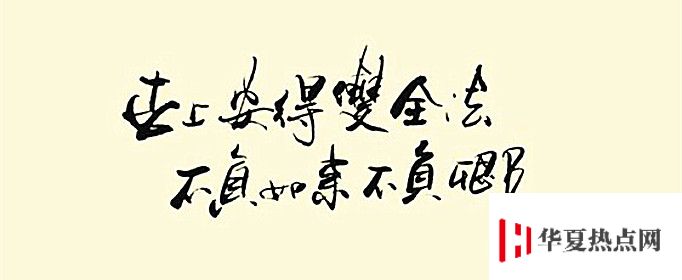 世上安得雙全法
不負如来不負卿
华夏热点网